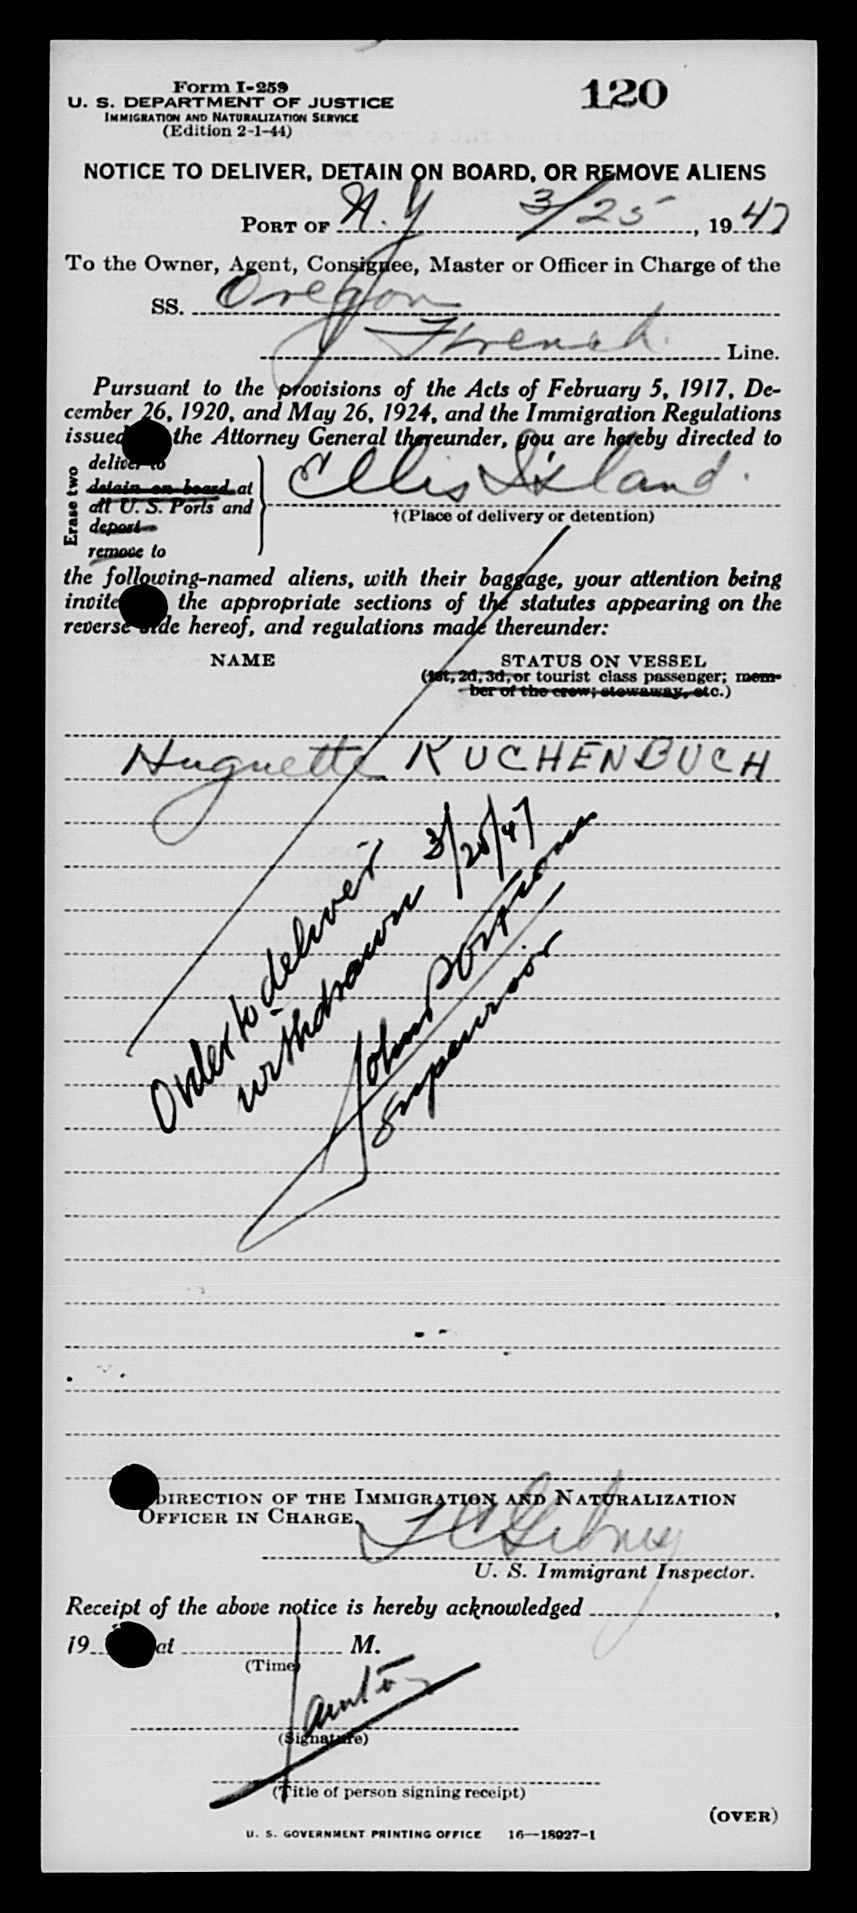 Form I-259
120
U. S. DEPARTMENT OF JUSTICE
IMMIGRATION AND NATURALIZATION SERVICE
(Edition 2-1-44)
NOTICE TO DELIVER, DETAIN ON BOARD, OR REMOVE ALIENS
PORT OF N.Y 3/25, 1947
To the Owner, Agent, Consignee, Master or Officer in Charge of the
SS. Oregon
French Line.
Pursuant to the provisions of the Acts of February 5, 1917, De-
cember 26, 1920, and May 26, 1924, and the Immigration Regulations
issued the Attorney General thereunder, you are hereby directed to
Erase two
deliver to
detain on board at
all U. S. Ports and
deport
remove to
Ellis Island.
†(Place of delivery or detention)
the following-named aliens, with their baggage, your attention being
invite the appropriate sections of the statutes appearing on the
reverse side hereof, and regulations made thereunder:
NAME
STATUS ON VESSEL
(1st, 2d, 3d, or tourist class passenger; mem-
ber of the crew; stowaway, etc.)
Huguette KUCHENBUCH
Order to deliver
withdrawn 3/25/47
John
Supervisor
DIRECTION OF THE IMMIGRATION AND NATURALIZATION
OFFICER IN CHARGE.
U. S. Immigrant Inspector.
Receipt of the above notice is hereby acknowledged ,
19 at M.
(Time)
(Signature)
(Title of person signing receipt)
(OVER)
U. S. GOVERNMENT PRINTING OFFICE 16—18927-1